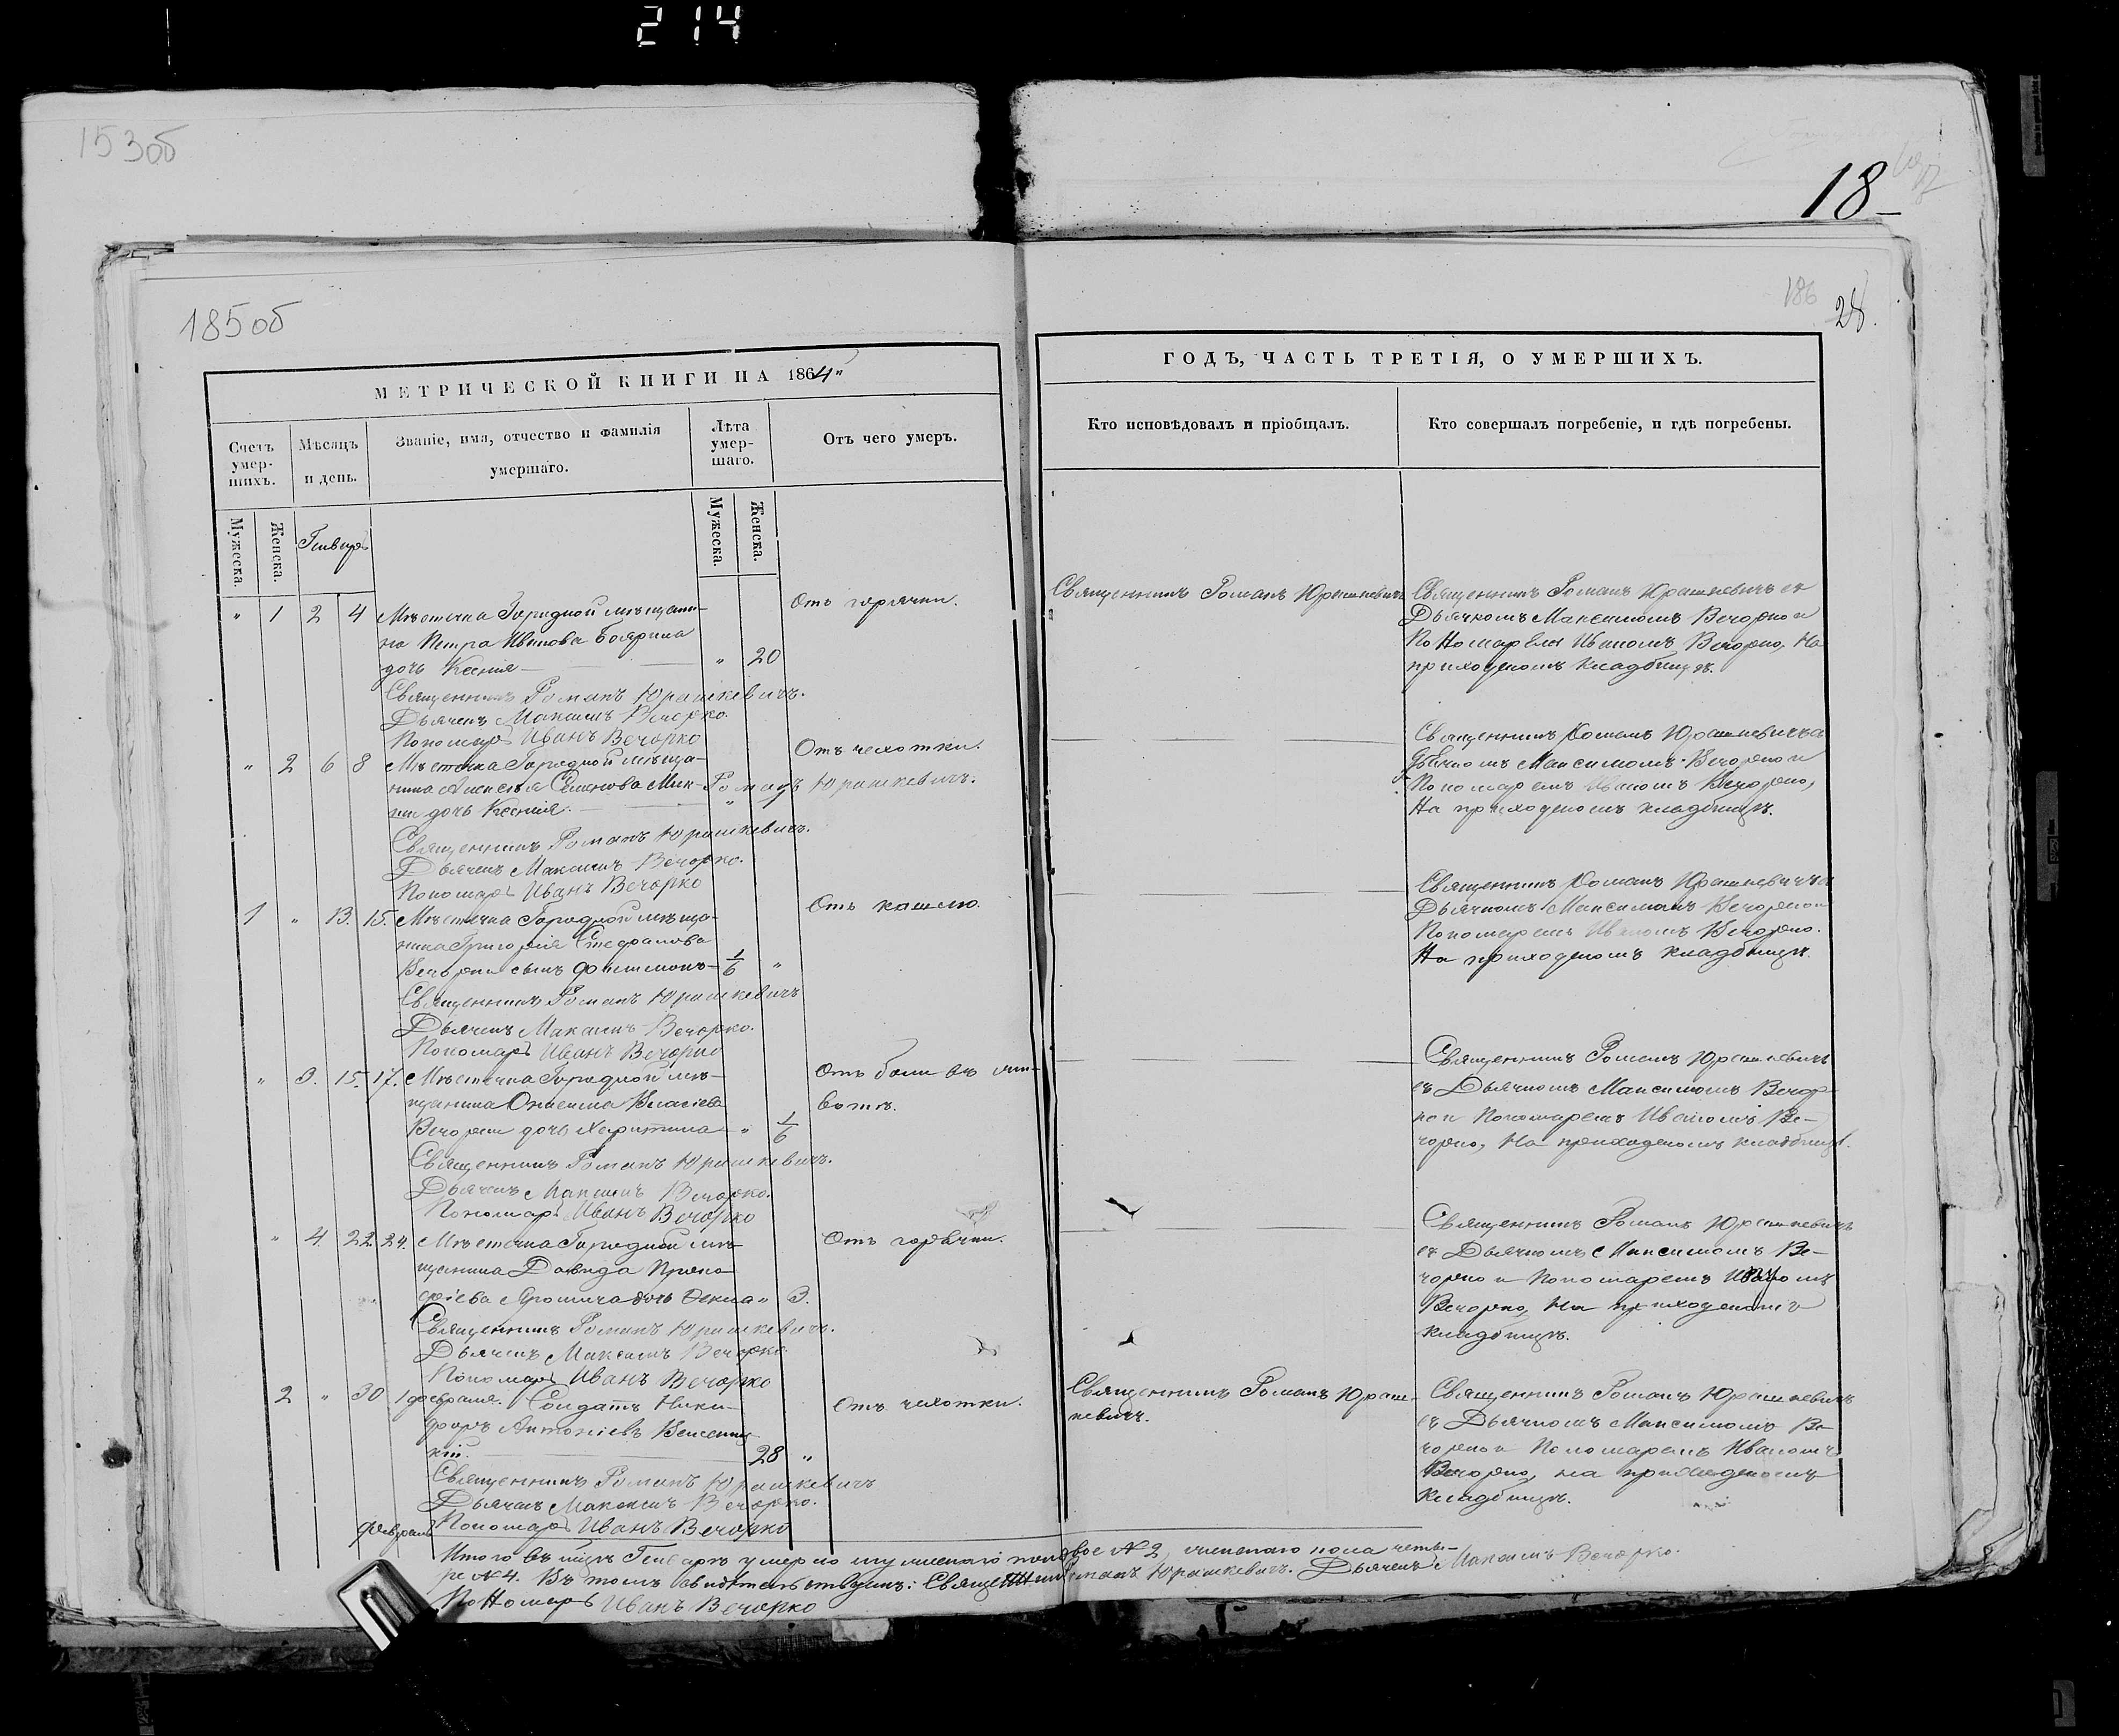 214
153об
18
185об
186
28.
МЕТРИЧЕСКОЙ КНИГИ НА 1864"
Счетъ умер-шихъ.
Мѣсяцъ и день.
Званіе, имя, отчество и фамилія умершаго.
Лѣта умер-шаго.
Отъ чего умеръ.
Мужеска.
Женска.
Генварь
Мужеска.
Женска.
" 1 2 4 Мѣстечка Городной мѣщани-
на Петра Иванова Боярина
дочь Ксенія " 20
Отъ горячки.
Священникъ Романъ Юрашкевичъ.
Дьячекъ Максимъ Вечорко.
Пономарь Иванъ Вечорко
" 2 6 8 Мѣстечка Городной мѣща-
нина Алексѣя Семенова Мик-
ки дочь Ксенія. "
Романъ Юрашкевичъ.
Отъ чахотки.
Священникъ Романъ Юрашкевичъ.
Дьячекъ Максимъ Вечорко.
Пономарь Иванъ Вечорко
1 " 13. 15. Мѣстечка Городной мѣща-
нина Григорія Стефанова
Вечорки сынъ Филимонъ 1/6 "
Отъ кашлю.
Священникъ Романъ Юрашкевичъ
Дьячекъ Максимъ Вечорко.
Пономарь Иванъ Вечорко
" 3. 15. 17. Мѣстечка Городной мѣ-
щанина Онисима Власіева
Вечорки дочь Харитина " 1/6
Отъ боли въ жи-
вотѣ.
Священникъ Романъ Юрашкевичъ.
Дьячекъ Максимъ Вечорко.
Пономарь Иванъ Вечорко
" 4. 22. 24. Мѣстечка Городной мѣ-
щанина Давида Проко-
фіева дочь Текла " 3.
Отъ горячки.
Священникъ Романъ Юрашкевичъ.
Дьячекъ Максимъ Вечорко.
Пономарь Иванъ Вечорко
2 " 30 1 февраля. Солдатъ Ники-
форъ Антоніевъ
кій. 28 "
Отъ чахотки.
Священникъ Романъ Юрашкевичъ
Дьячекъ Максимъ Вечорко.
Февраль
Пономарь Иванъ Вечорко
ГОДЪ, ЧАСТЬ ТРЕТІЯ, О УМЕРШИХЪ.
Кто исповѣдовалъ и пріобщалъ.
Кто совершалъ погребеніе, и гдѣ погребены.
Священникъ Романъ Юрашкевичъ
Священникъ Романъ Юрашкевичъ съ
Дьячкомъ Максимомъ Вечорко и
Пономаремъ Иваномъ Вечорко, На
приходскомъ кладбищѣ.
Священникъ Романъ Юрашкевичъ съ
Дьячкомъ Максимомъ Вечорко и
Пономаремъ Иваномъ Вечорко,
На приходскомъ кладбищѣ.
Священникъ Романъ Юрашкевичъ съ
Дьячкомъ Максимомъ Вечорко и
Пономаремъ Иваномъ Вечорко.
На приходскомъ кладбищѣ.
Священникъ Романъ Юрашкевичъ
съ Дьячкомъ Максимомъ Вечор-
ко и Пономаремъ Иваномъ Ве-
чорко, На приходскомъ кладбищѣ.
Священникъ Романъ Юрашкевичъ
съ Дьячкомъ Максимомъ Ве-
чорко и Пономаремъ Иваномъ
Вечорко, На приходскомъ
кладбищѣ.
Священникъ Романъ Юраш-
кевичъ.
Священникъ Романъ Юрашкевичъ
съ Дьячкомъ Максимомъ Ве-
чорко и Пономаремъ Иваномъ
Вечорко, на приходскомъ
кладбищѣ.
Итого въ мцѣ Генварѣ умерло мужескаго пола двое №2, женскаго пола четы-
ре №4. Въ томъ свидѣтельствуемъ: Священникъ Романъ Юрашкевичъ. Дьячекъ Максимъ Вечорко.
Пономарь Иванъ Вечорко